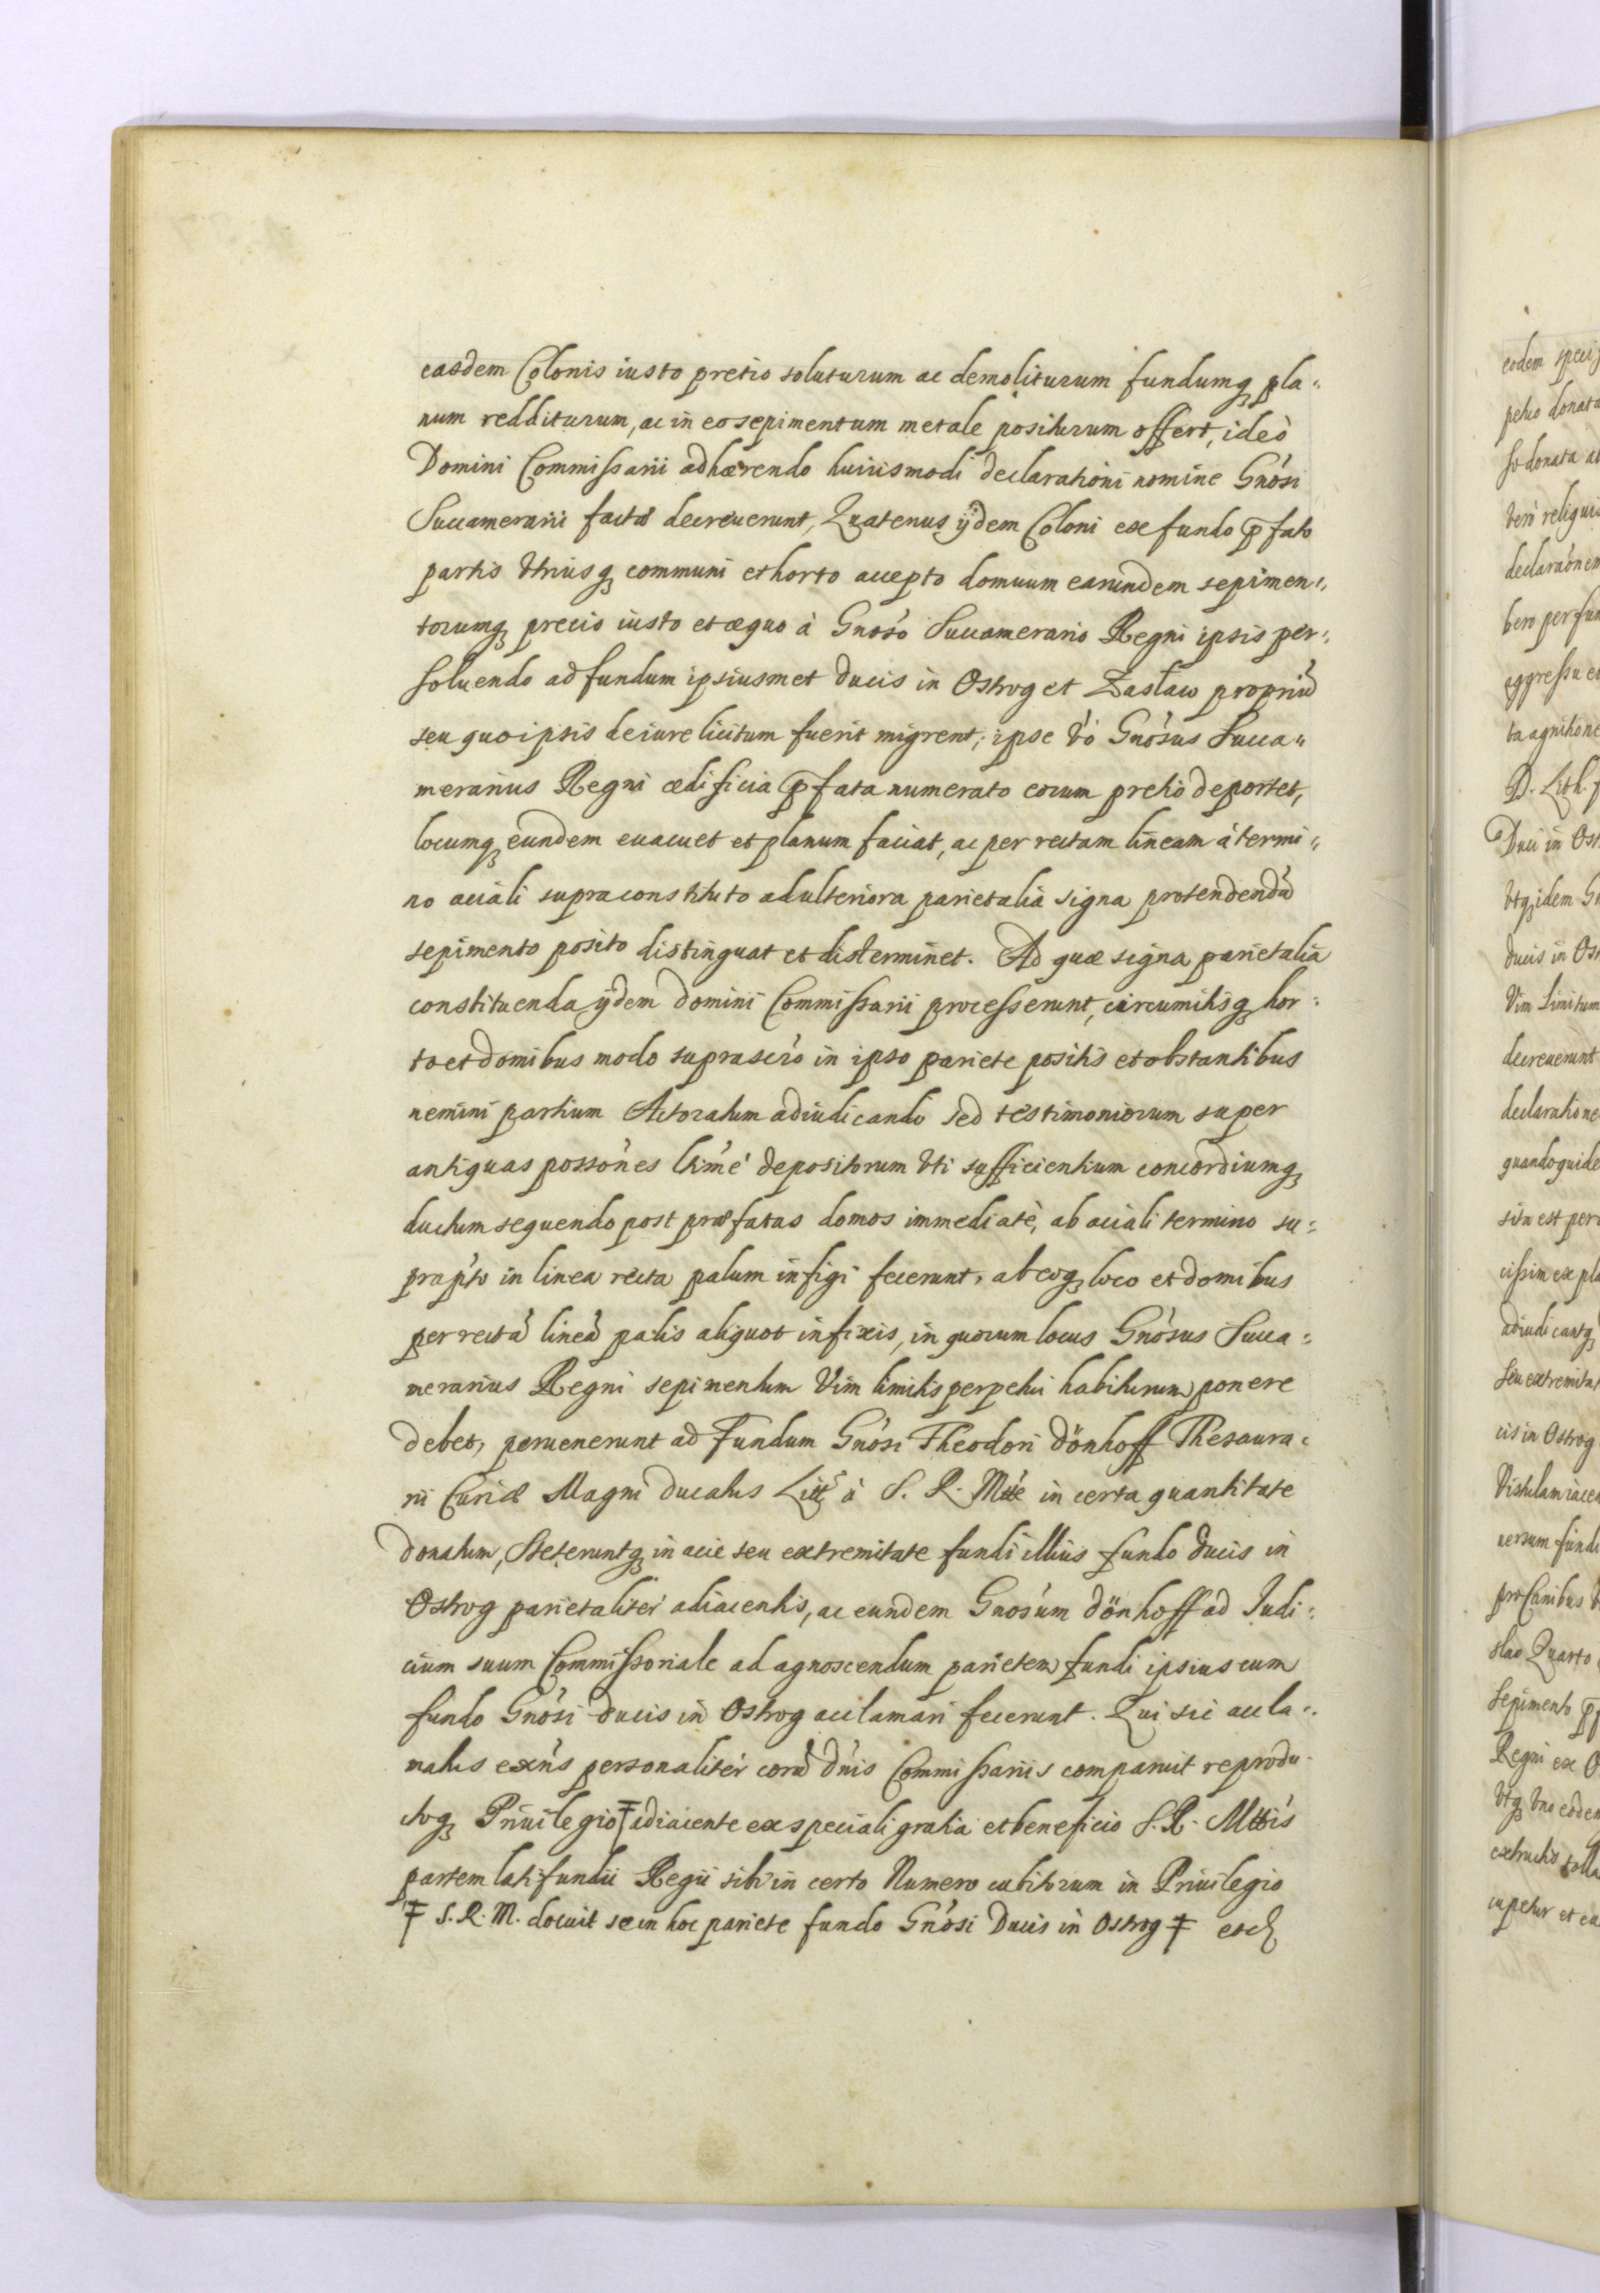 easdem Colonis iusto pretio soluturum ac demoliturum fundumq₃ pla„
num redditurum, ac in eo sepimentum metale positurum offert, ideò
Domini Commissarii adhærendo huiusmodi declarationi nomine Gnósi
Succamerarii factæ decreuerunt, Quatenus ijdem Coloni ex fundo p̄fato
partis vtriusq₃ communi et horto accepto domuum earundem sepimen„
torumq₃ precio iusto et æquo à Gnóso Succamerario Regni ipsis per„
soluendo ad fundum ipsiusmet Ducis in Ostrog et Zasław propriũ
seu quo ipsis de iure licitum fuerit migrent; ipse vó Gnósus Succa„
merarius Regni ædificia p̄fata numerato eorum pretio deportet,
locumq₃ eundem euacuet et planum faciat, ac per rectam lineam à termi„
no aciali supra constituto ad ulteriora parietalia signa protendendũ
sepimento posito distinguat et disterminet. Ad quæ signa parietalia
constituenda ijdem Domini Commissarii processerunt, circumitisq₃ hor„
to et domibus modo suprascró in ipso pariete positis et obstantibus
nemini partium Actoratum adiudicando sed testimoniorum super
antiquas possónes ltimé depositorum vti sufficientium concordiumq₃
ductum sequendo post præfatas domos immediatè, ab aciali termino su„
praptó in linea recta palum infigi fecerunt, ab eoq₃ loco et domibus
per rectã lineã palis aliquot infixis, in quorum locus Gnósus Succa„
merarius Regni sepimentum vim limitis perpetui habiturum ponere
debet, peruenerunt ad fundum Gnósi Theodori Dönhoff Thesaura„
rii Curiæ Magni Ducatus Litt à S. R. Mtté in certa quantitate
donatum, Steteruntq₃ in acie seu extremitate fundi illius fundo Ducis in
Ostrog parietaliter adiacentis, ac eundem Gnósum Dönhoff ad Judi„
cium suum Commissoriale ad agnoscendum parietem fundi ipsius cum
fundo Gnósi Ducis in Ostrog acclamari fecerunt. Qui sic accla„
matus exńs personaliter corã Dńis Commissariis comparuit reprodu„
ctoq₃ Priuilegio ‡ adiacente ex speciali gratia et beneficio S. R. Mttis
partem latifundii Regii sibi in certo Numero cubitorum in Priuilegio
‡ S. R. M. docuit se in hoc pariete fundo Gnósi Ducis in Ostrog ‡